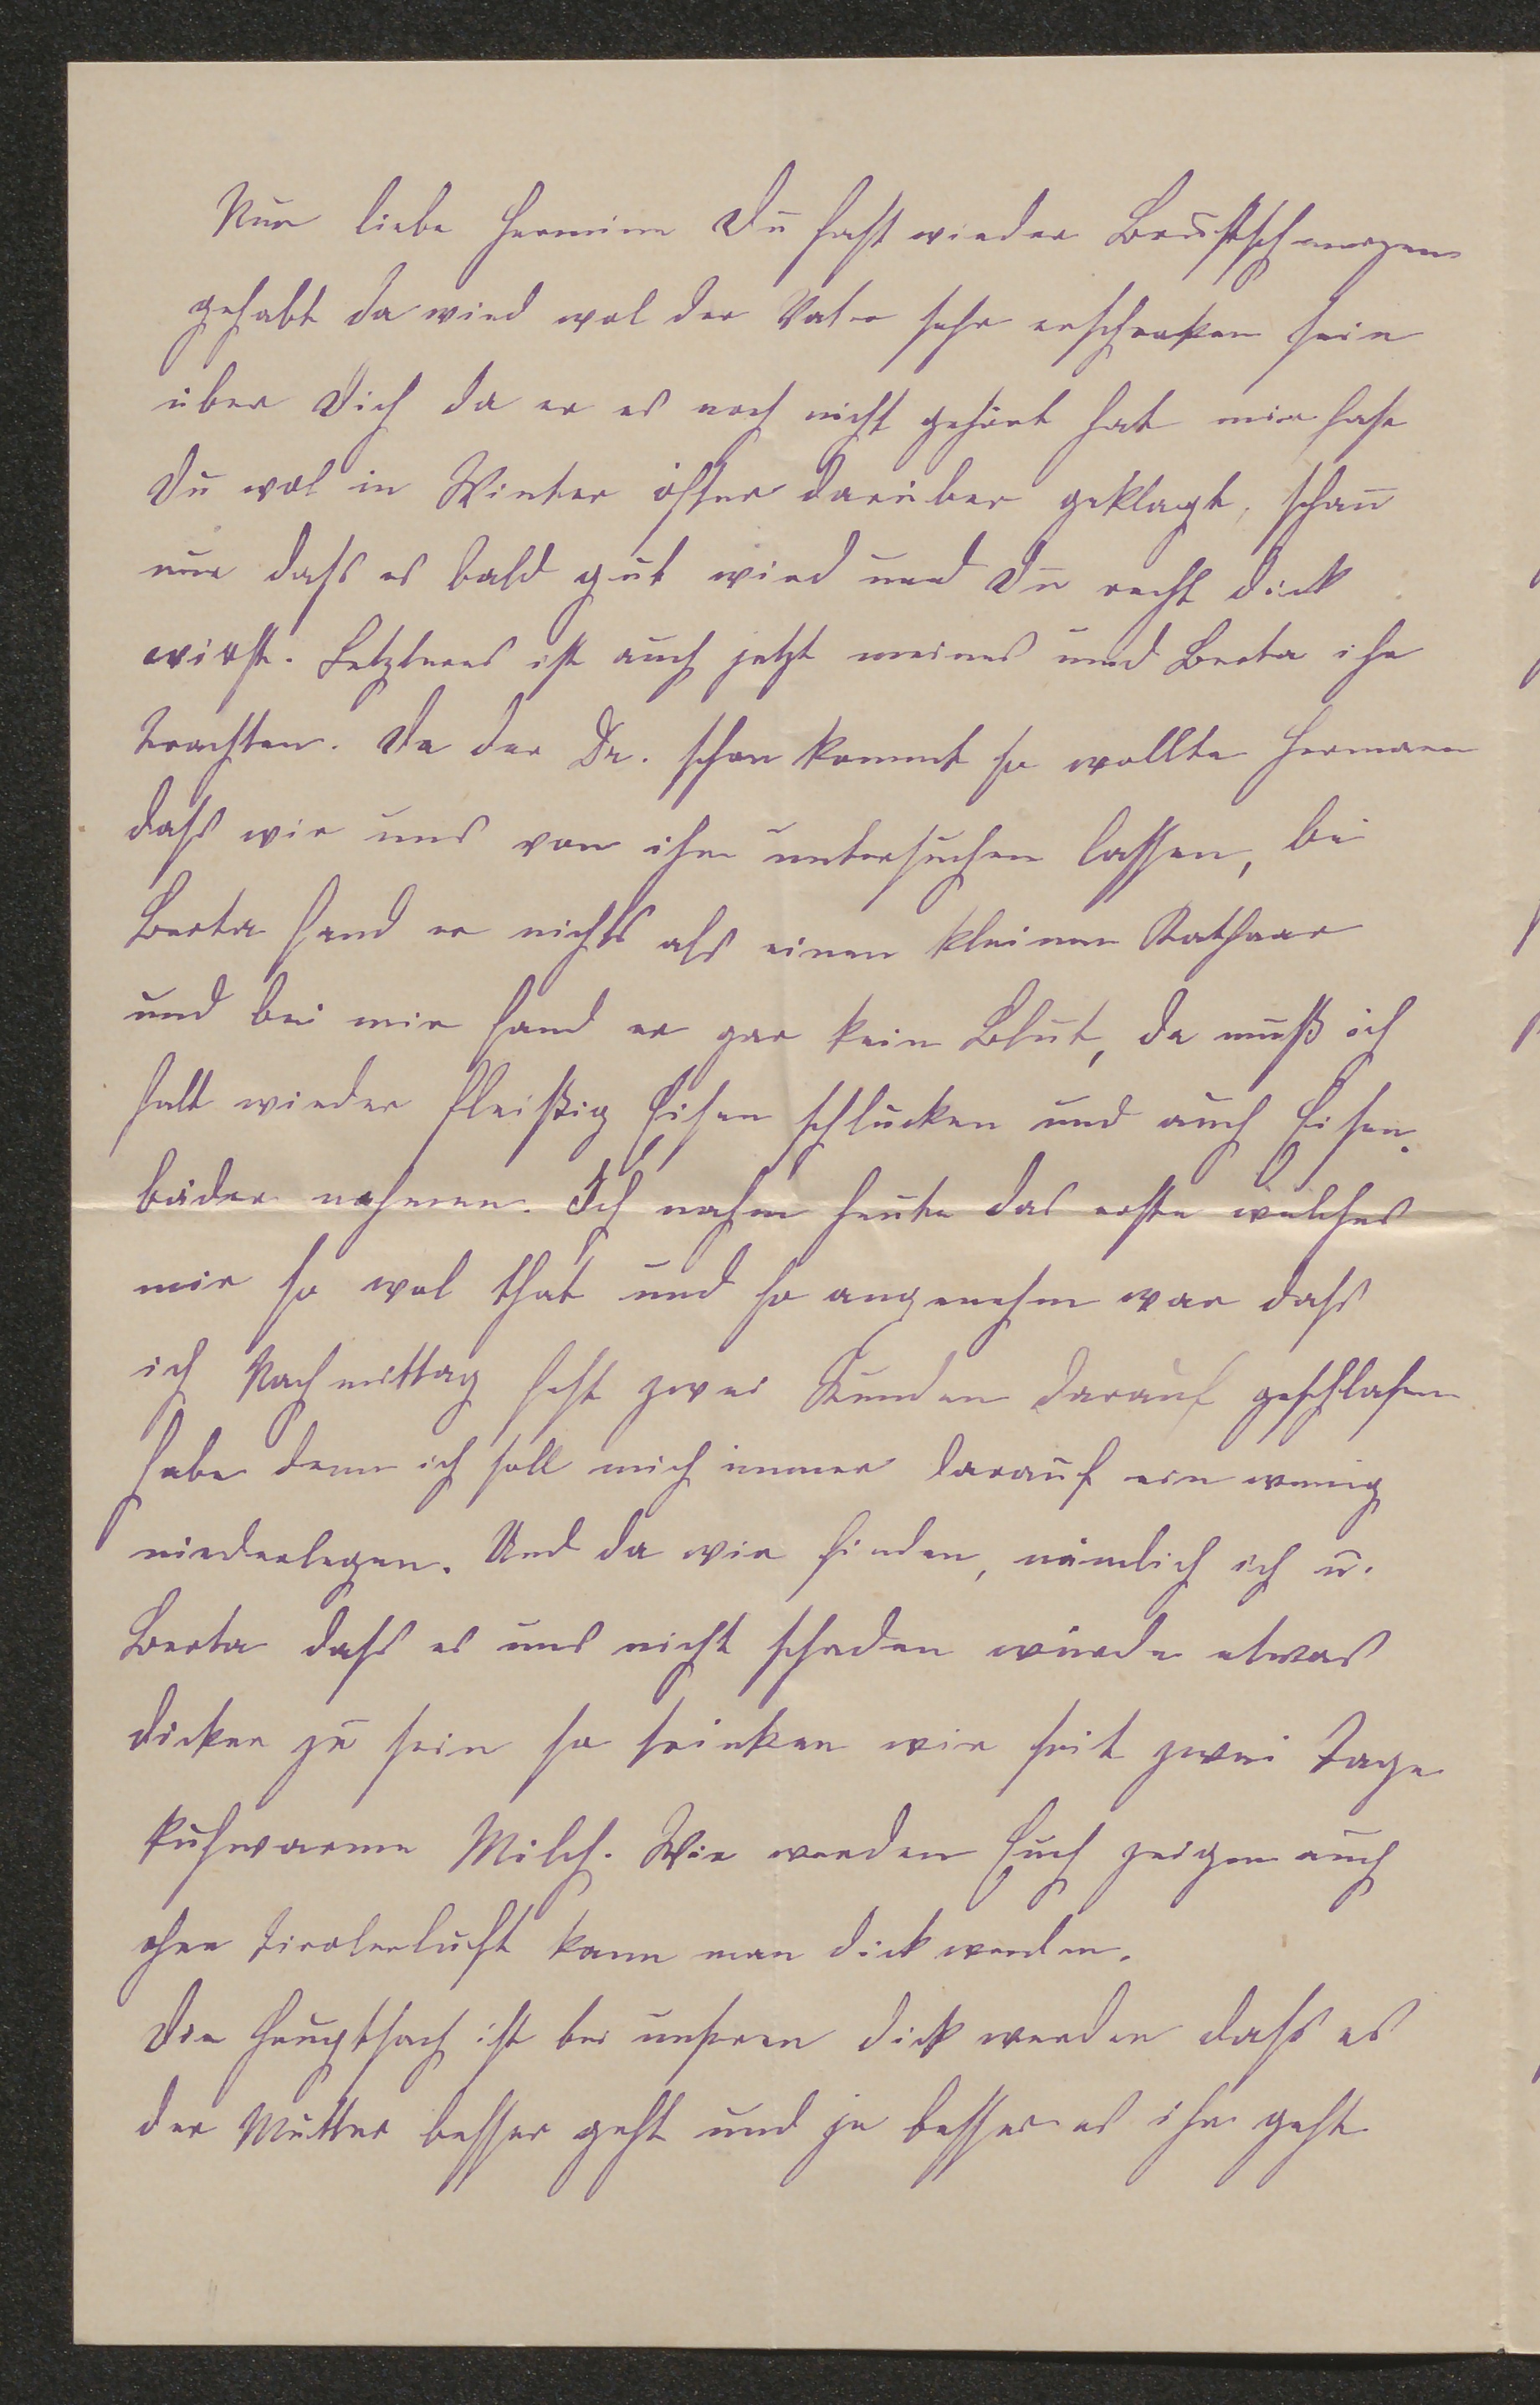 Nun liebe Hermine Du hast wieder Brustschmerzen
gehabt da wird wol der Vater sehr erschroken sein
über Dich da er es noch nicht gehört hat mir hast
Du wol in Winter öfter darüber geklagt, schau
nur daß es bald gut wird und Du recht dick
wirst. Letzteres ist auch jetzt meines und Berta ihr
trachten. Da der Dr. schon kommt so wollte Hermann
daß wir uns von ihm untersuchen lassen, bei
Berta fand er nichts als einen kleinen Kathaar
und bei mir fand er gar kein Blut, da muß ich
halt wieder fleißig Eisen schlucken und auch Eisen-
bäder nehmen. Ich nahm heute das erste welches
mir so wol that und so angenehm war daß
ich Nachmittag fest zwei Stunden darauf geschlafen
habe denn ich soll mich immer darauf ein wenig
niederlegen. Und da wir finden, nämlich ich u.
Berta daß es uns nicht schaden würde etwas
dicker zu sein so trinken wir seit zwei Tage
kuhwarme Milch. Wir werden Euch zeigen auch
ohne Tirolerluft kann man dick werden.
Die Hauptsach ist bei unseren dick werden daß es
der Mutter besser geht und je besser es ihr geht